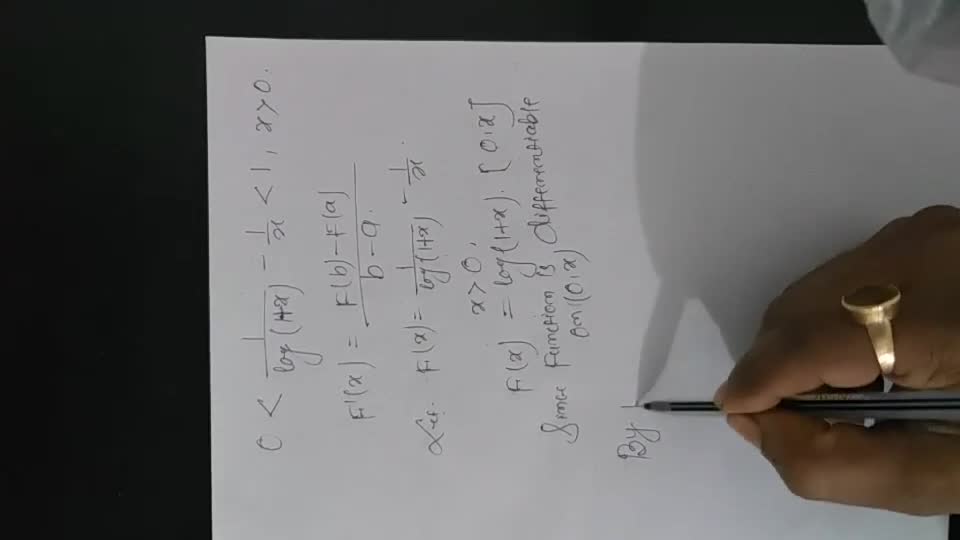 0 < 1/log(1+x) - 1/x < 1, x > 0.
F'(x) = F(b) - F(a) / b - a.
Let. F(x) = 1/log(1+x) - 1/x.
x > 0,
F(x) = log(1+x). [0,x]
Since Function is differentiable
on (0,x)
By